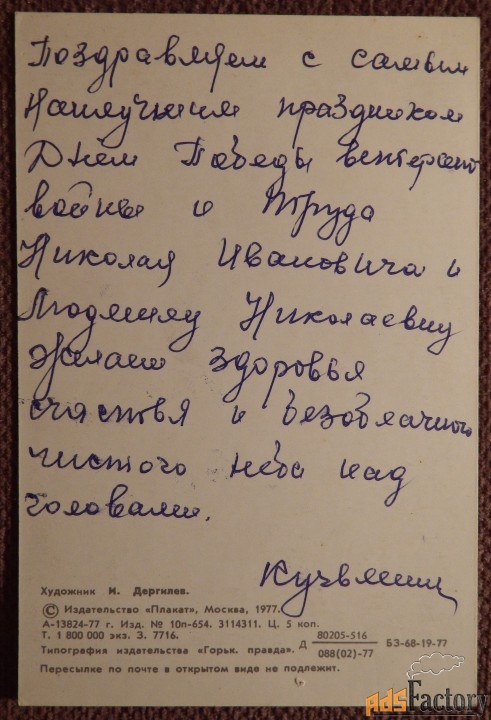 Поздравляем с самым
Наилучшим праздником
Днём Победы ветерана
войны и Труда
Николая Ивановича и
Людмилу Николаевну
Желаем здоровья
счастья и безоблачного
чистого неба над
головами.
Художник И. Дергилев.
© Издательство «Плакат», Москва, 1977.
А-13824-77 г. Изд. № 10п-654. 3114311. Ц. 5 коп.
Т. 1 800 000 экз. З. 7716.
Типография издательства «Горьк. правда». Д 80205-516 / 088(02)-77 БЗ-68-19-77
Пересылке по почте в открытом виде не подлежит.
AdsFactory